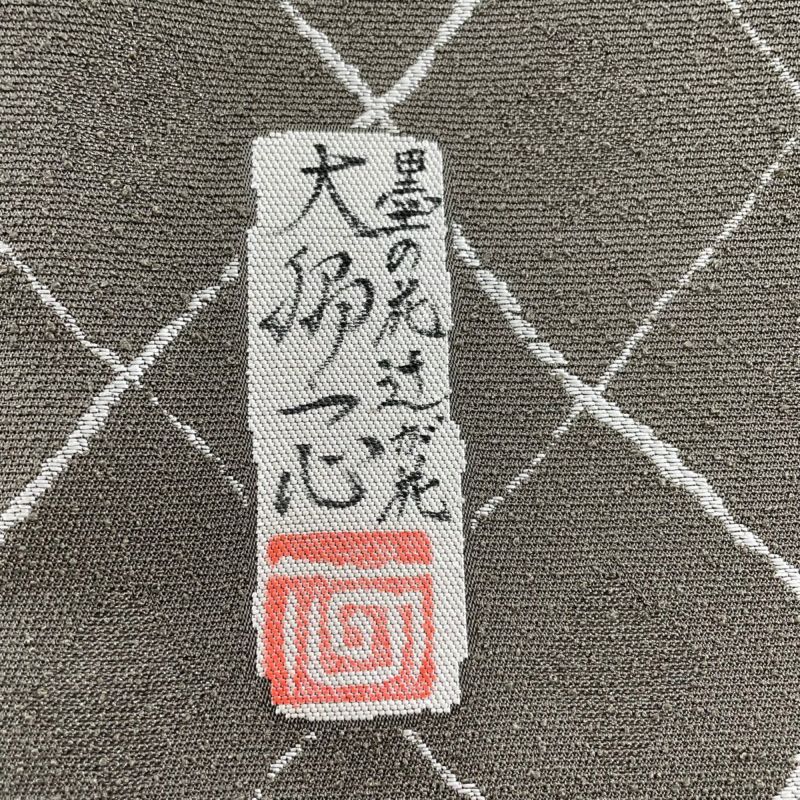 墨の花辻が花
大脇一心